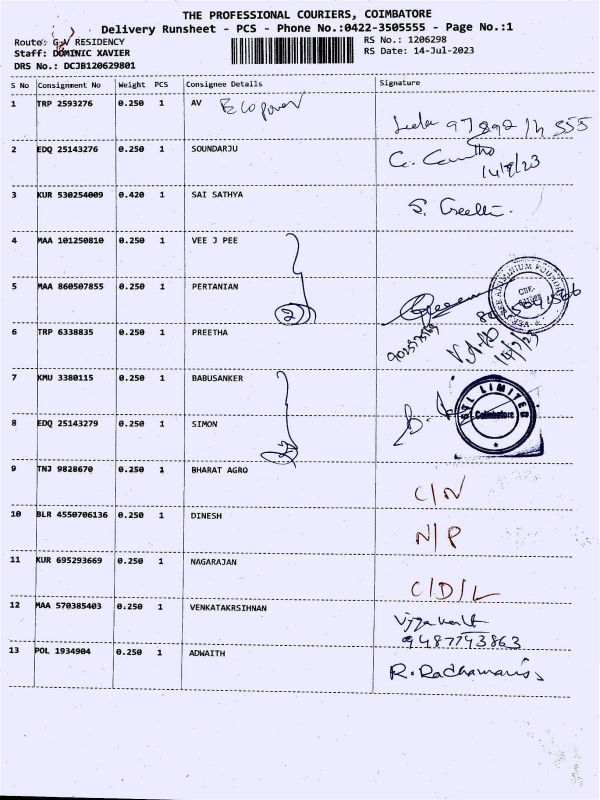 THE PROFESSIONAL COURIERS, COIMBATORE
Delivery Runsheet - PCS - Phone No.:0422-3505555 - Page No.:1
Route: G.V RESIDENCY
RS No.: 1206298
Staff: DOMINIC XAVIER
RS Date: 14-Jul-2023
DRS No.: DCJB120629801
S No Consignment No Weight PCS Consignee Details Signature
1 TRP 2593276 0.250 1 AV Ecopower
2 EDQ 25143276 0.250 1 SOUNDARJU
14/7/23
3 KUR 530254009 0.420 1 SAI SATHYA
S.
4 MAA 101250810 0.250 1 VEE J PEE
5 MAA 860507855 0.250 1 PERTANIAN
2
CBE-
6 TRP 6338835 0.250 1 PREETHA
14/7/23
7 KMU 3380115 0.250 1 BABUSANKER
LIMITED
Coimbatore
8 EDQ 25143279 0.250 1 SIMON
9 TNJ 9828670 0.250 1 BHARAT AGRO
C/N
10 BLR 4550706136 0.250 1 DINESH
N/P
11 KUR 695293669 0.250 1 NAGARAJAN
C/D/L
12 MAA 570385403 0.250 1 VENKATAKRSIHNAN
9487743863
13 POL 1934904 0.250 1 ADWAITH